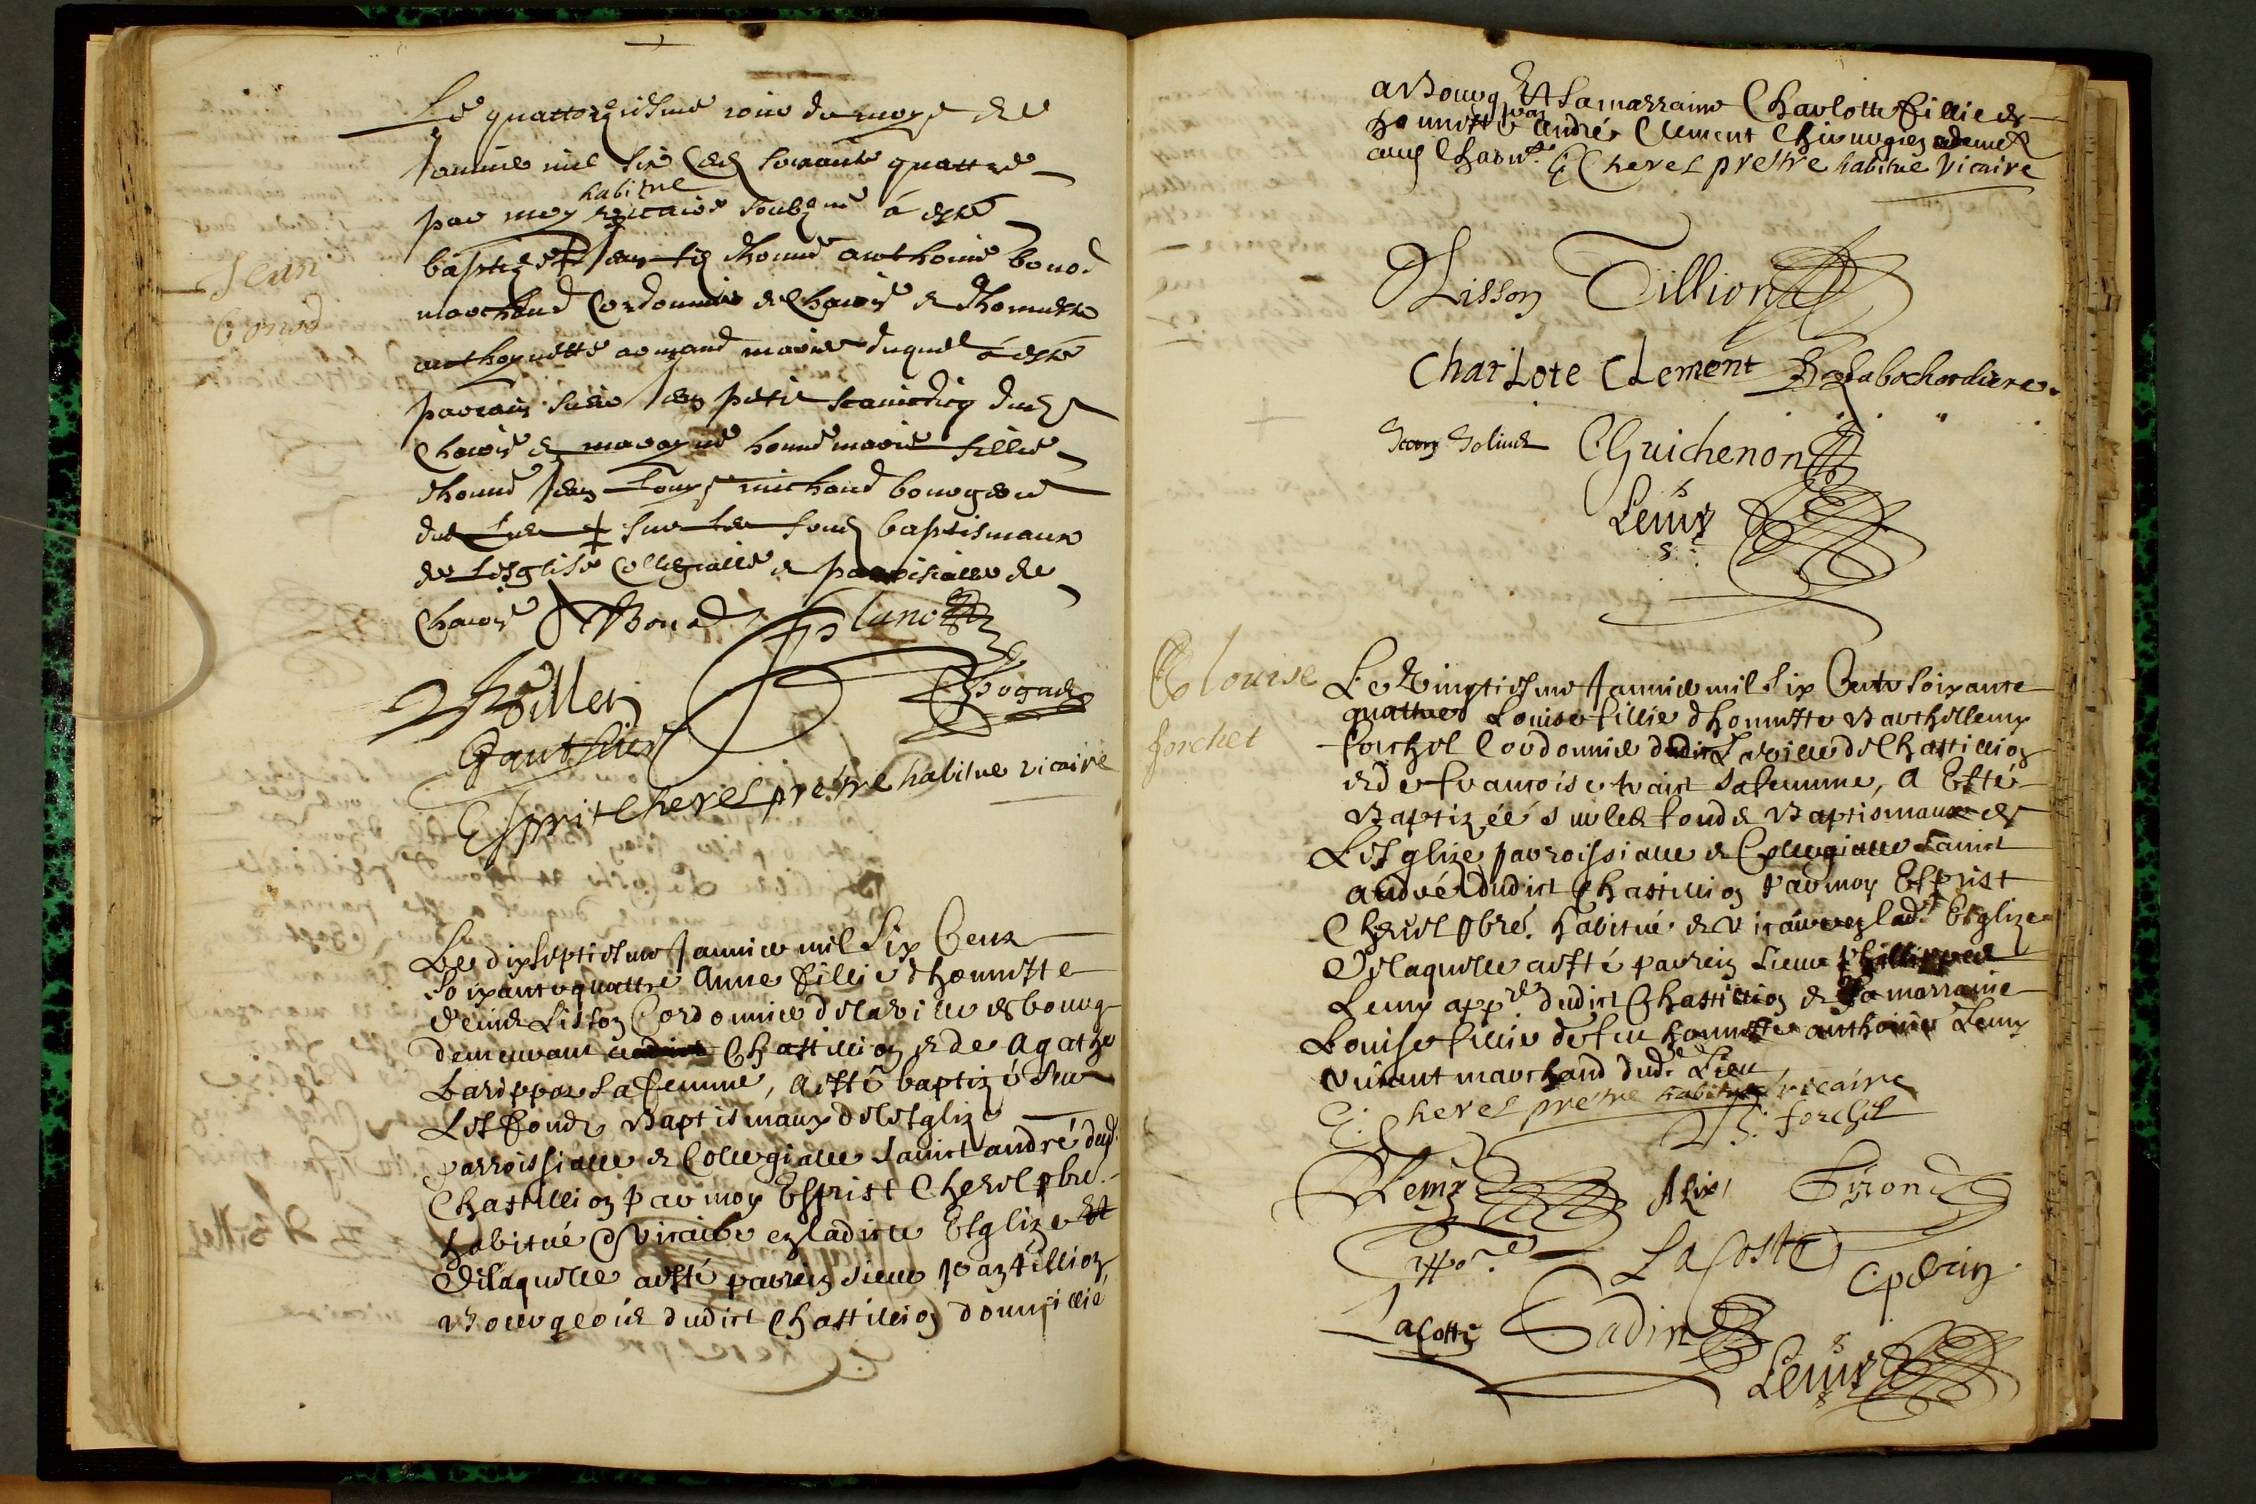 Le quattorziesme jour du moys de
Janvier mil six cens soixante quattre
habitue
par moy vicaire soubzne á esté
baptizé Jean filz dhonne anthoine bonod
Jean
bonod
marchand Cordonnier de & dhonneste
anthoynette armand mariés duquel á esté
parrain sieur Jean petit scindicq dud
& marayne honne marie fillie
dhonne Jean Louys michaud bourgeois
dud Lieu sur les fons baptismaux
de Lesglise Collegialle & paroisialle de
Bonod
Gauthier
Esprit Cherel prestre habitue vicaire
Le dixseptiesme Janvier mil Six Cens
Soixante quattre Anne fillie dhonneste
Denis Lisson Cordonnier de la ville de bourg
demeurant Chastillion & de Agathe
sa femme, a esté baptizé sur
Les fondz Baptismaux de lesglize
parroissialle & Collegialle Sainct andré dud.
Chastillion par moy Esprist Cherel pbre.
habitué & Vicaire en ladicte Esglize Et
De laquelle a esté parrein sieur Jean tillion
Bourgeois dudict Chastillion domicillié
a Bourg Et la marraine Charlotte fillie de
honneste andré Clement Chirurgien
E Cherel prestre habitué Vicaire
DLisson Tillion
CharLote CLement De Labochardiere
CGuichenon
Leniz
Louise
forchet
Le Vingtiesme Janvier mil Six Cents soixante
quattre Louise fillie dhonneste Barthellemy
forchel Cordonnier dudict La ville de Chastillion
& de francoise sa femme, A Esté
Baptizéé sur les fondz Baptismaux de
Lesglize parroissialle & Collegialle Sainct
andré dudict Chastillion Par moy Esprist
Cherel pbre. habitué & vicaire en lad. Esglize
De laquelle a esté parrein Sieur Phillippes
Leniz dudict Chastillion & La marraine
Louise fillie de feu honneste anthoine Leniz
vivant marchand dud. Lieu
E. Cherel prestre habitué vicaire
B. forchel
Leniz ALix Girond
LaCoste
Lacotte Gadin
Leniz